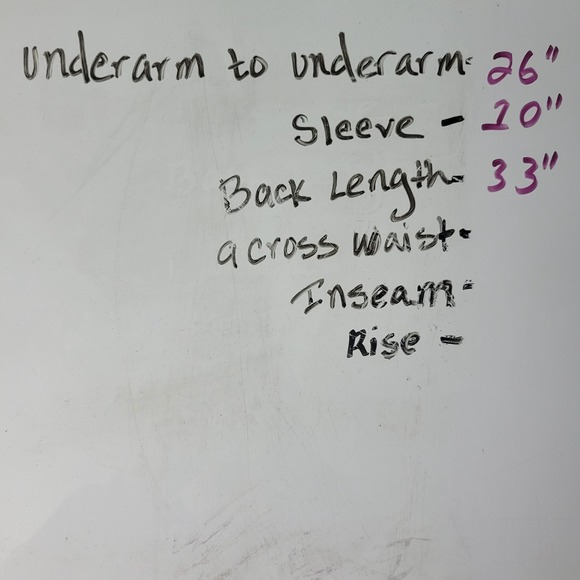 underarm to underarm- 26"
Sleeve - 10"
Back Length- 33"
across waist-
Inseam-
Rise -